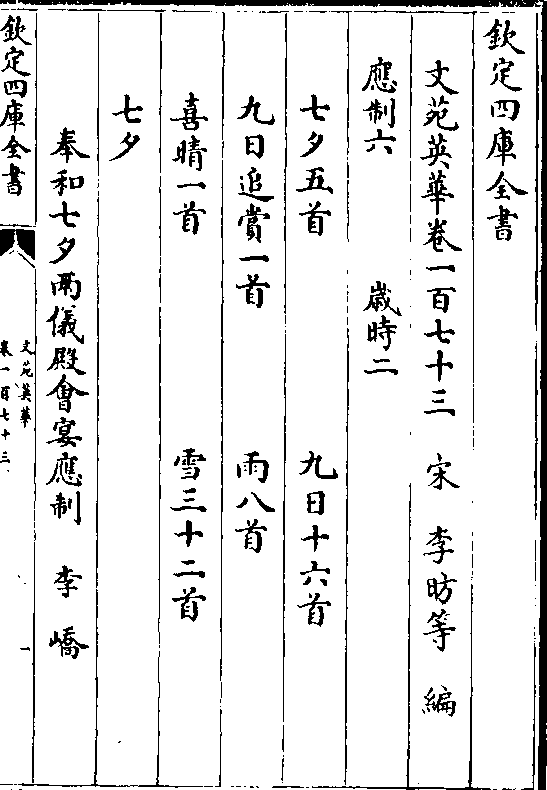 欽定四庫全書
文苑英華卷一百七十三 宋 李昉等 編
應制六 歲時二
七夕五首 九日十六首
九日追賞一首 雨八首
喜晴一首 雪三十二首
七夕
奉和七夕兩儀殿會宴應制 李嶠
欽定四庫全書
文苑英華
卷一百七十三
一